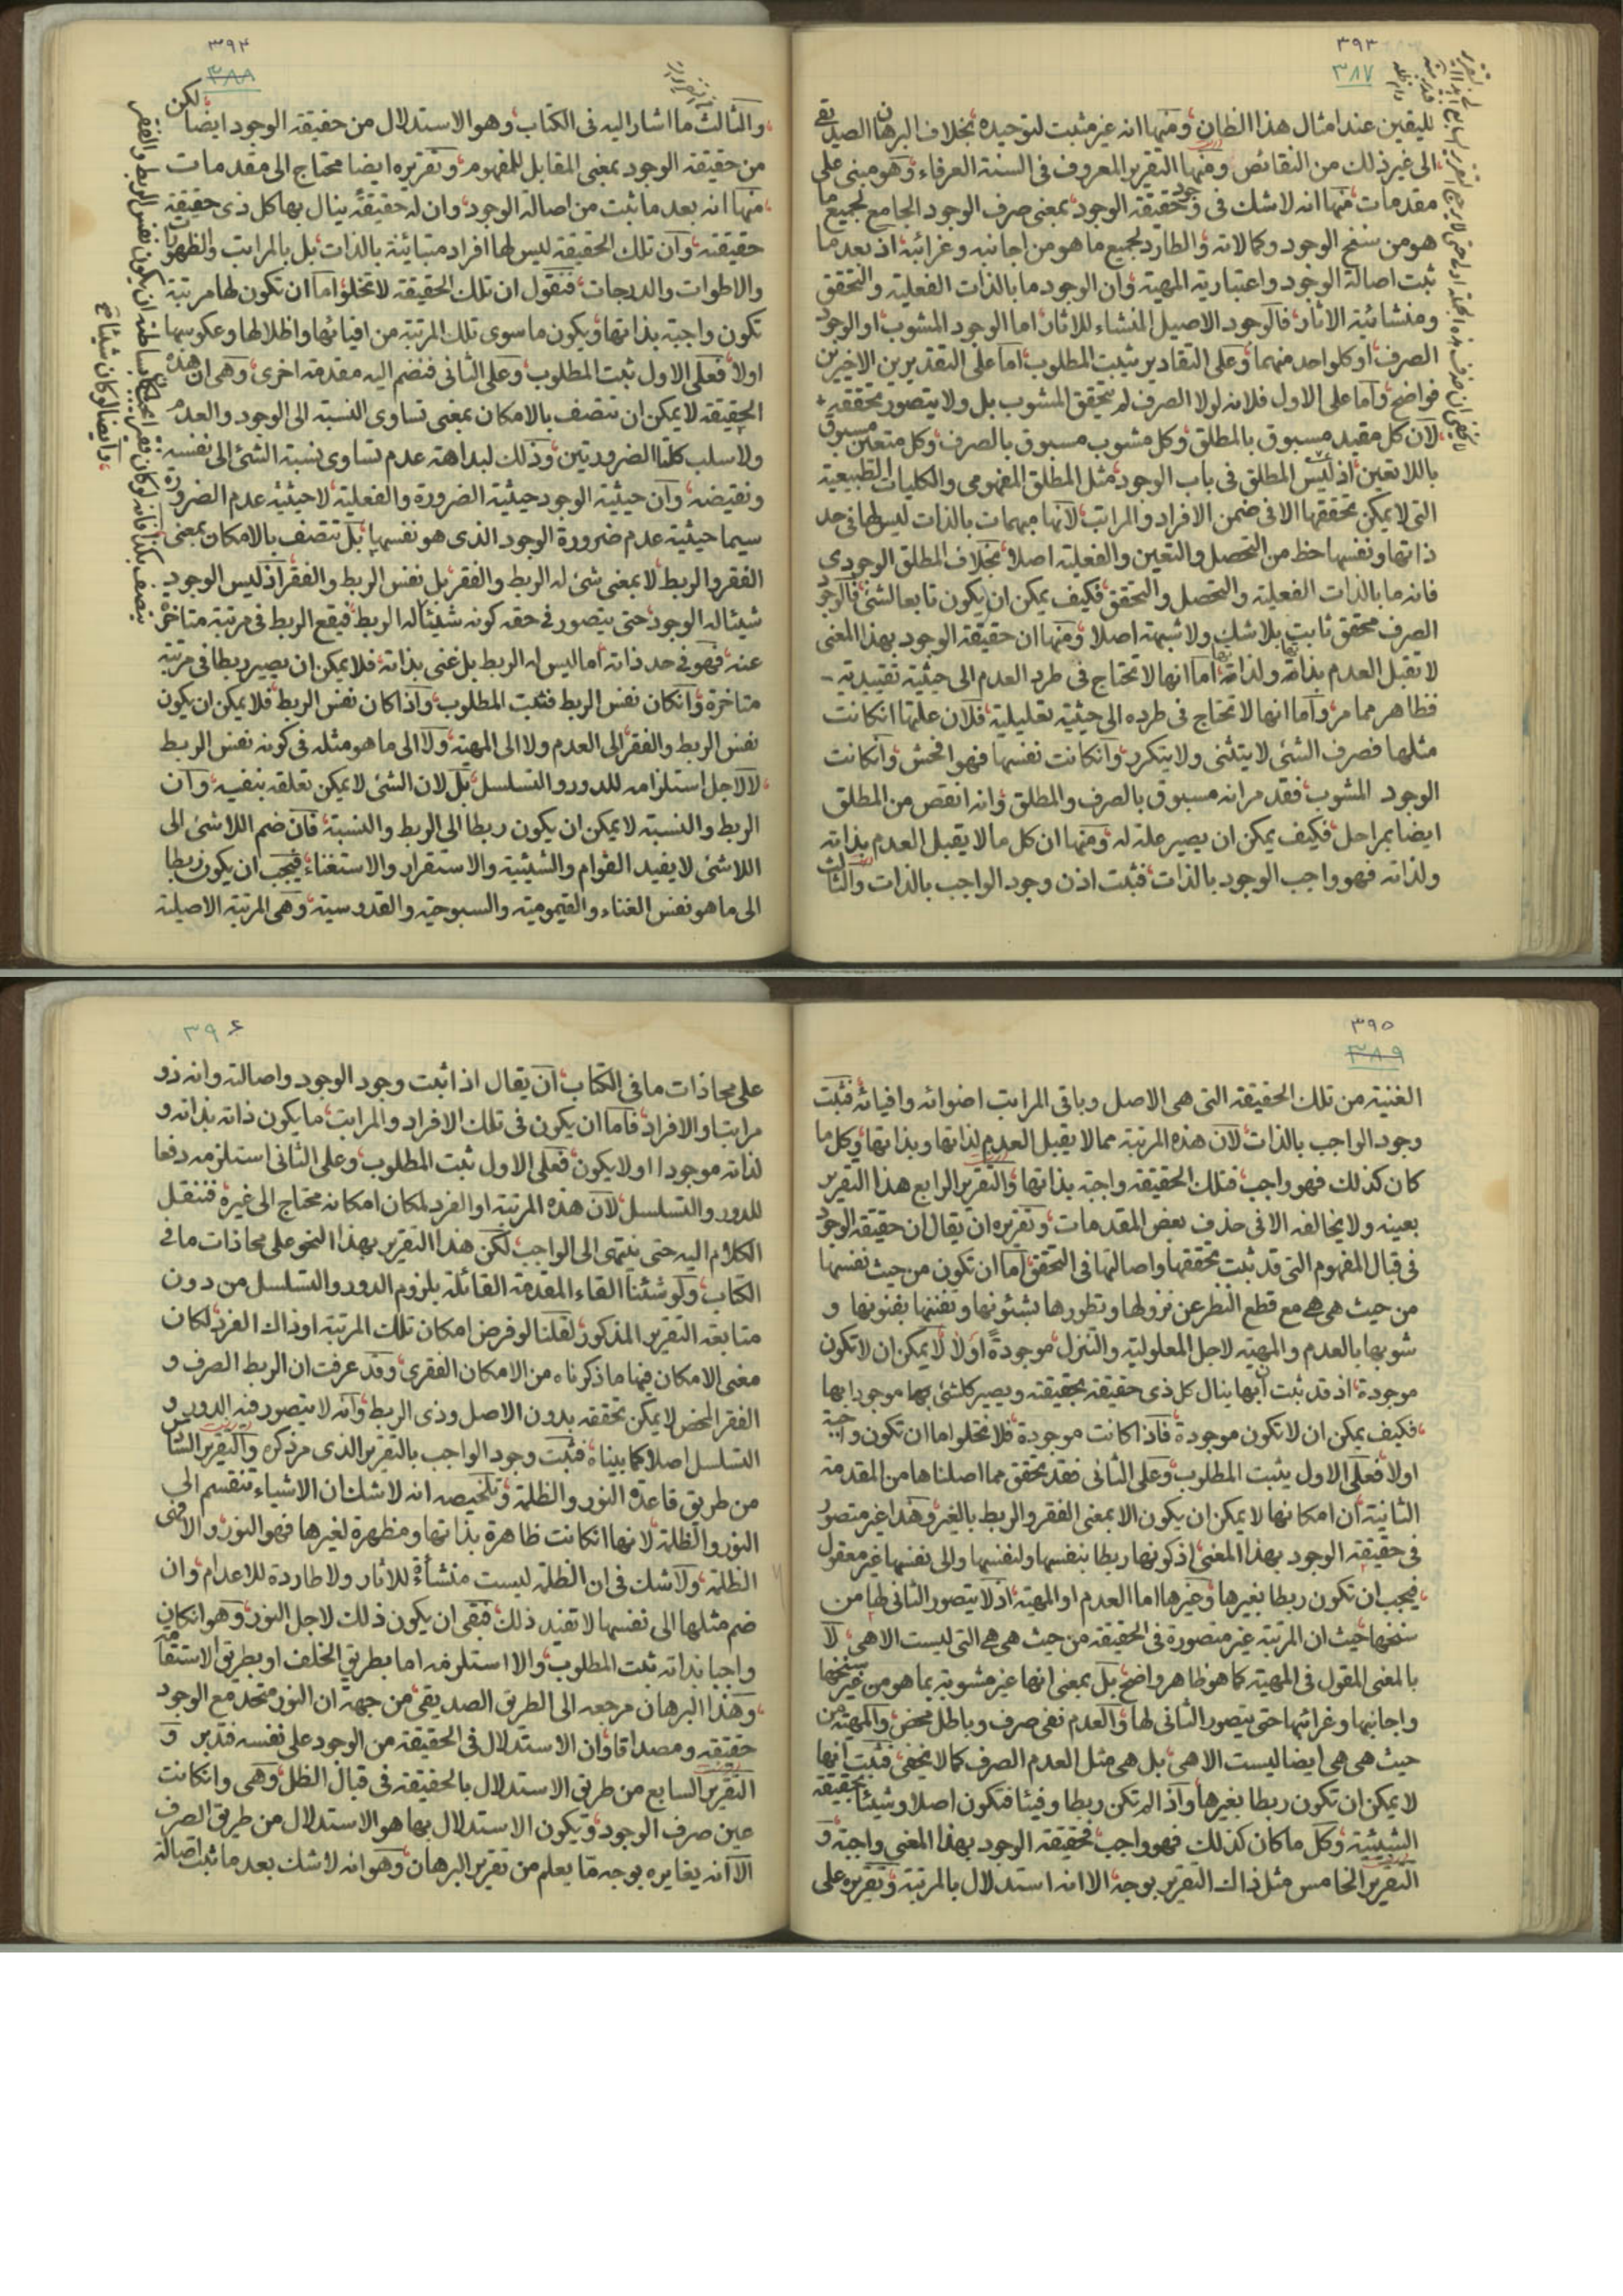 ٣٩٣
٣٨٧
لليقين عند امثال هذا الظان ومنها انه غير مثبت لتوحيده بخلاف البرهان الصديقى
الى غير ذلك من النقائص ومنها التقرير المعروف فى السنة العرفاء وهو مبنى على
مقدمات منها انه لاشك فى وجود حقيقة الوجود بمعنى صرف الوجود الجامع لجميع ما
هو من سنخ الوجود وكمالاته والطارد لجميع ما هو من اجانبه وغرائبه اذ بعد ما
ثبت اصالة الوجود واعتبارية المهية وان الوجود ما بالذات الفعلية والتحقق
ومنشائية الاثار فالوجود الاصيل المنشاء للاثار اما الوجود المشوب او الوجود
الصرف او كلواحد منهما وعلى التقادير يثبت المطلوب اما على التقديرين الاخيرين
فواضح واما على الاول فلانه لولا الصرف لم يتحقق المشوب بل ولا يتصور تحققه
لان كل مقيد مسبوق بالمطلق وكل مشوب مسبوق بالصرف وكل متعين مسبوق
باللاتعين اذ ليس المطلق فى باب الوجود مثل المطلق المفهومى والكليات الطبيعية
التى لا يمكن تحققها الا فى ضمن الافراد والمراتب لانها مبهمات بالذات ليس لها فى حد
ذاتها ونفسها حظ من التحصل والتعين والفعلية اصلا بخلاف المطلق الوجودى
فانه ما بالذات الفعلية والتحصل والتحقق فكيف يمكن ان يكون تابعا لشئ فالوجود
الصرف محقق ثابت بلا شك ولا شبهة اصلا ومنها ان حقيقة الوجود بهذا المعنى
لا تقبل العدم بذاته ولذاته اما انها لا تحتاج فى طرد العدم الى حيثية تقييدية
فظاهر مما مر واما انها لا تحتاج فى طرده الى حيثية تعليلية فلان علتها انكانت
مثلها فصرف الشئ لا يتثنى ولا يتكرر وانكانت نفسها فهو افحش وانكانت
الوجود المشوب فقد مر انه مسبوق بالصرف والمطلق وانه انقص من المطلق
ايضا بمراحل فكيف يمكن ان يصير علة له ومنها ان كل ما لا يقبل العدم بذاته
ولذاته فهو واجب الوجود بالذات فثبت اذن وجود الواجب بالذات والثالث
٣٩٤
٣٨٨
والثالث ما اشار اليه فى الكتاب وهو الاستدلال من حقيقة الوجود ايضا لكن
من حقيقة الوجود بمعنى المقابل للمفهوم وتقريره ايضا محتاج الى مقدمات
منها انه بعد ما ثبت من اصالة الوجود وان له حقيقة ينال بها كل ذى حقيقة
حقيقته وان تلك الحقيقة ليس لها افراد متبائنة بالذات بل بالمراتب والظهورات
والاطوات والدرجات فنقول ان تلك الحقيقة لا تخلو اما ان تكون لها مرتبة
تكون واجبة بذاتها ويكون ما سوى تلك المرتبة من افيائها واظلالها وعكوسها
اولا فعلى الاول ثبت المطلوب وعلى الثانى فنضم اليه مقدمة اخرى وهى ان هذه
الحقيقة لا يمكن ان تتصف بالامكان بمعنى تساوى النسبة الى الوجود والعدم
ولا سلب كلتا الضرورتين وذلك لبداهة عدم تساوى نسبة الشئ الى نفسه
ونقيضه وان حيثية الوجود حيثية الضرورة والفعلية لا حيثية عدم الضرورة
سيما حيثية عدم ضرورة الوجود الذى هو نفسها بل تتصف بالامكان بمعنى
الفقر والربط لا بمعنى شئ له الربط والفقر بل نفس الربط والفقر اذ ليس الوجود
شيئا له الوجود حتى يتصور فى حقه كونه شيئا له الربط فيقع الربط فى مرتبة متاخرة
عنه فهو فى حد ذاته اما ليس له الربط بل غنى بذاته فلا يمكن ان يصير ربطا فى مرتبة
متاخرة وانكان نفس الربط فثبت المطلوب واذا كان نفس الربط فلا يمكن ان يكون
نفس الربط والفقر الى العدم ولا الى المهية ولا الى ما هو مثله فى كونه نفس الربط
لا لاجل استلزامه للدور والتسلسل بل لان الشئ لا يمكن تعلقه بنفسه وان
الربط والنسبة لا يمكن ان يكون ربطا الى الربط والنسبة فان ضم اللاشئ الى
اللاشئ لا يفيد القوام والشيئية والاستقرار والاستغناء فيجب ان يكون ربطا
الى ما هو نفس الغناء والقيمومية والسبوحية والقدوسية وهى المرتبة الاصيلة
وايضا لو كان شيئا
٣٩٥
٣٨٩
الغنية من تلك الحقيقة التى هى الاصل وباقى المراتب اضوائه وافيائه فثبت
وجود الواجب بالذات لان هذه المرتبة مما لا يقبل العدم لذاتها وبذاتها وكل ما
كان كذلك فهو واجب فتلك الحقيقة واجبة بذاتها والتقرير الرابع هذا التقرير
بعينه ولا يخالفه الا فى حذف بعض المقدمات وتقريره ان يقال ان حقيقة الوجود
فى قبال المفهوم التى قد ثبت تحققها واصالتها فى التحقق اما ان تكون من حيث نفسها
من حيث هى هى مع قطع النظر عن نزولها وتطورها بشئونها وتفننها بفنونها و
شوبها بالعدم والمهية لاجل المعلولية والتنزل موجودة اولا لا يمكن ان لا تكون
موجودة اذ قد ثبت ان بها ينال كل ذى حقيقة بحقيقته ويصير كلشئ بها موجودا بها
فكيف يمكن ان لا تكون موجودة فاذا كانت موجودة فلا تخلوا اما ان تكون واجبة
اولا فعلى الاول يثبت المطلوب وعلى الثانى فقد تحقق مما اصلناها من المقدمة
الثانية ان امكانها لا يمكن ان يكون الا بمعنى الفقر والربط بالغير وهذا غير متصور
فى حقيقة الوجود بهذا المعنى اذ كونها ربطا بنفسها ولنفسها والى نفسها غير معقول
فيجب ان تكون ربطا بغيرها وغيرها اما العدم او المهية اذ لا يتصور الثانى لها من
سنخها حيث ان المرتبة غير متصورة فى الحقيقة من حيث هى هى التى ليست الا هى لا
بالمعنى المقول فى المهية كما هو ظاهر واضح بل بمعنى انها غير مشوبة بما هو من غير سنخها
واجانبها وغرائبها حتى يتصور الثانى لها والعدم نفى صرف وباطل محض والمهية من
حيث هى هى ايضا ليست الا هى بل هى مثل العدم الصرف كما لا يخفى فثبت انها
لا يمكن ان تكون ربطا بغيرها واذا لم تكن ربطا وفيئا فتكون اصلا وشيئا بحقيقة
الشيئية وكل ما كان كذلك فهو واجب فحقيقة الوجود بهذا المعنى واجبة و
التقرير الخامس مثل ذاك التقرير بوجه الا انه استدلال بالمرتبة وتقريره على
٣٩۶
على محاذات ما فى الكتاب ان يقال اذا ثبت وجود الوجود واصالته وانه ذو
مراتب او الافراد فاما ان يكون فى تلك الافراد والمراتب ما يكون ذاته بذاته و
لذاته موجودا اولا يكون فعلى الاول ثبت المطلوب وعلى الثانى استلزمه دفعا
للدور والتسلسل لان هذه المرتبة او الفرد لمكان امكانه محتاج الى غيره فننقل
الكلام اليه حتى ينتهى الى الواجب لكن هذا التقرير بهذا النحو على محاذات ما فى
الكتاب ولو شئنا القاء المقدمة القائلة بلزوم الدور والتسلسل من دون
متابعة التقرير المذكور لقلنا لو فرض امكان تلك المرتبة او ذاك الفرد لكان
معنى الامكان فيها ما ذكرناه من الامكان الفقرى وقد عرفت ان الربط الصرف و
الفقر المحض لا يمكن تحققه بدون الاصل وذى الربط وانه لا يتصور فيه الدور و
التسلسل اصلا كما بيناه فثبت وجود الواجب بالتقرير الذى مر ذكره والتقرير السادس
من طريق قاعدة النور والظلمة وتلخيصه انه لاشك ان الاشياء تنقسم الى
النور والظلمة لانها انكانت ظاهرة بذاتها ومظهرة لغيرها فهو النور والا فهى
الظلمة ولا شك فى ان الظلمة ليست منشأة للاثار ولا طاردة للاعدام وان
ضم مثلها الى نفسها لا تفيد ذلك فبقى ان يكون ذلك لاجل النور وهو انكان
واجبا بذاته ثبت المطلوب والا استلزمه اما بطريق الخلف او بطريق الاستقامة
وهذا البرهان مرجعه الى الطريق الصديقى من جهة ان النور متحد مع الوجود
حقيقة ومصداقا وان الاستدلال فى الحقيقة من الوجود على نفسه فتدبر و
التقرير السابع من طريق الاستدلال بالحقيقة فى قبال الظل وهى وانكانت
عين صرف الوجود ويكون الاستدلال بها هو الاستدلال من طريق الصرف
الا انه يغايره بوجه ما يعلم من تقرير البرهان وهو انه لاشك بعد ما ثبت اصالة